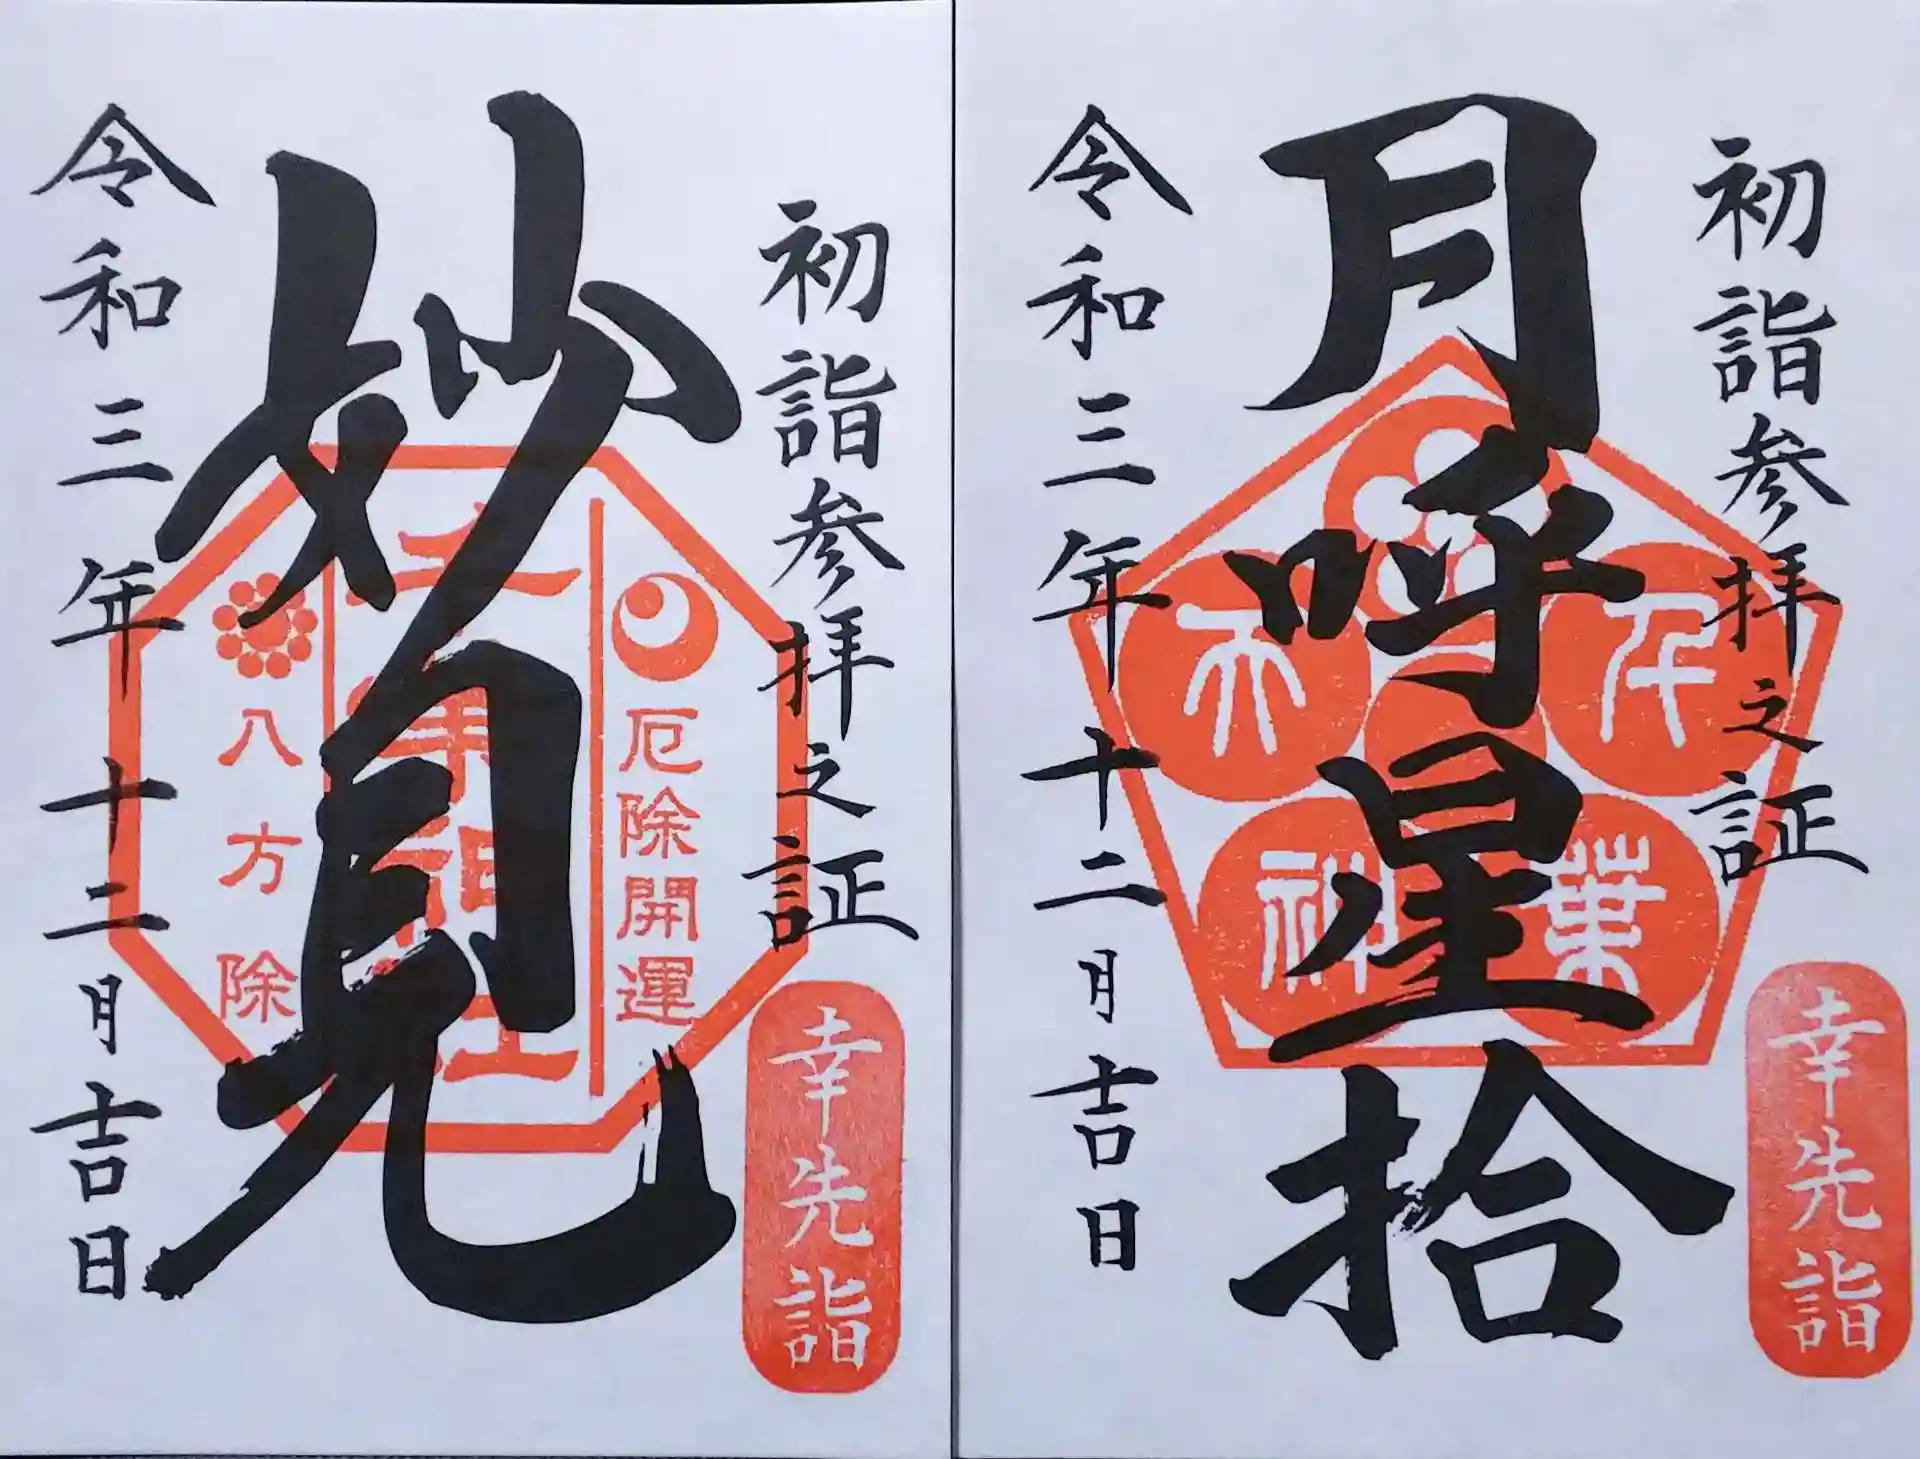 初詣参拝之証
妙見
令和三年十二月吉日
厄除開運
八方除
幸先詣
初詣参拝之証
月呼星拾
令和三年十二月吉日
千
葉
神
幸先詣